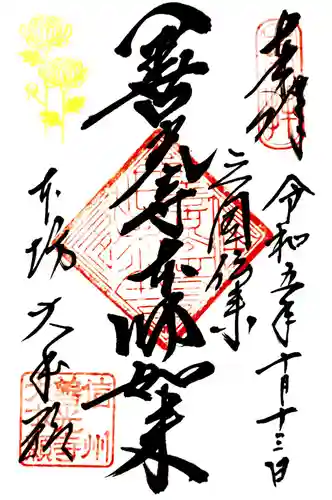 奉拝
令和五年十月十三日
三國伝来
善光寺本師如来
本坊 大本願
信州
善光寺
大本願